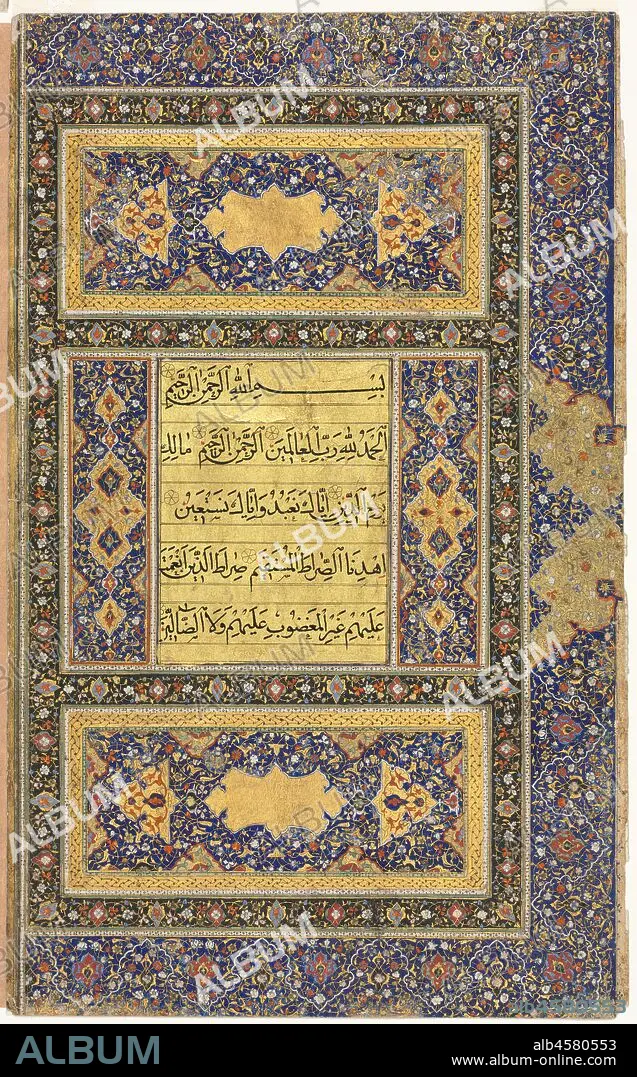 بِسْمِ اللهِ الرَّحْمٰنِ الرَّحِيمِ
اَلْحَمْدُ لِلهِ رَبِّ الْعَالَمِينَ الرَّحْمٰنِ الرَّحِيمِ مَالِكِ
يَوْمِ الدِّينِ اِيَّاكَ نَعْبُدُ وَاِيَّاكَ نَسْتَعِينُ
اِهْدِنَا الصِّرَاطَ الْمُسْتَقِيمَ صِرَاطَ الَّذِينَ اَنْعَمْتَ
عَلَيْهِمْ غَيْرِ الْمَغْضُوبِ عَلَيْهِمْ وَلَا الضَّالِّينَ
ALBUM
ALBUM
ALBUM
ALBUM
ALBUM
ALBUM
ALBUM
ALBUM
ALBUM
ALBUM
alb4580553
www.album-online.com